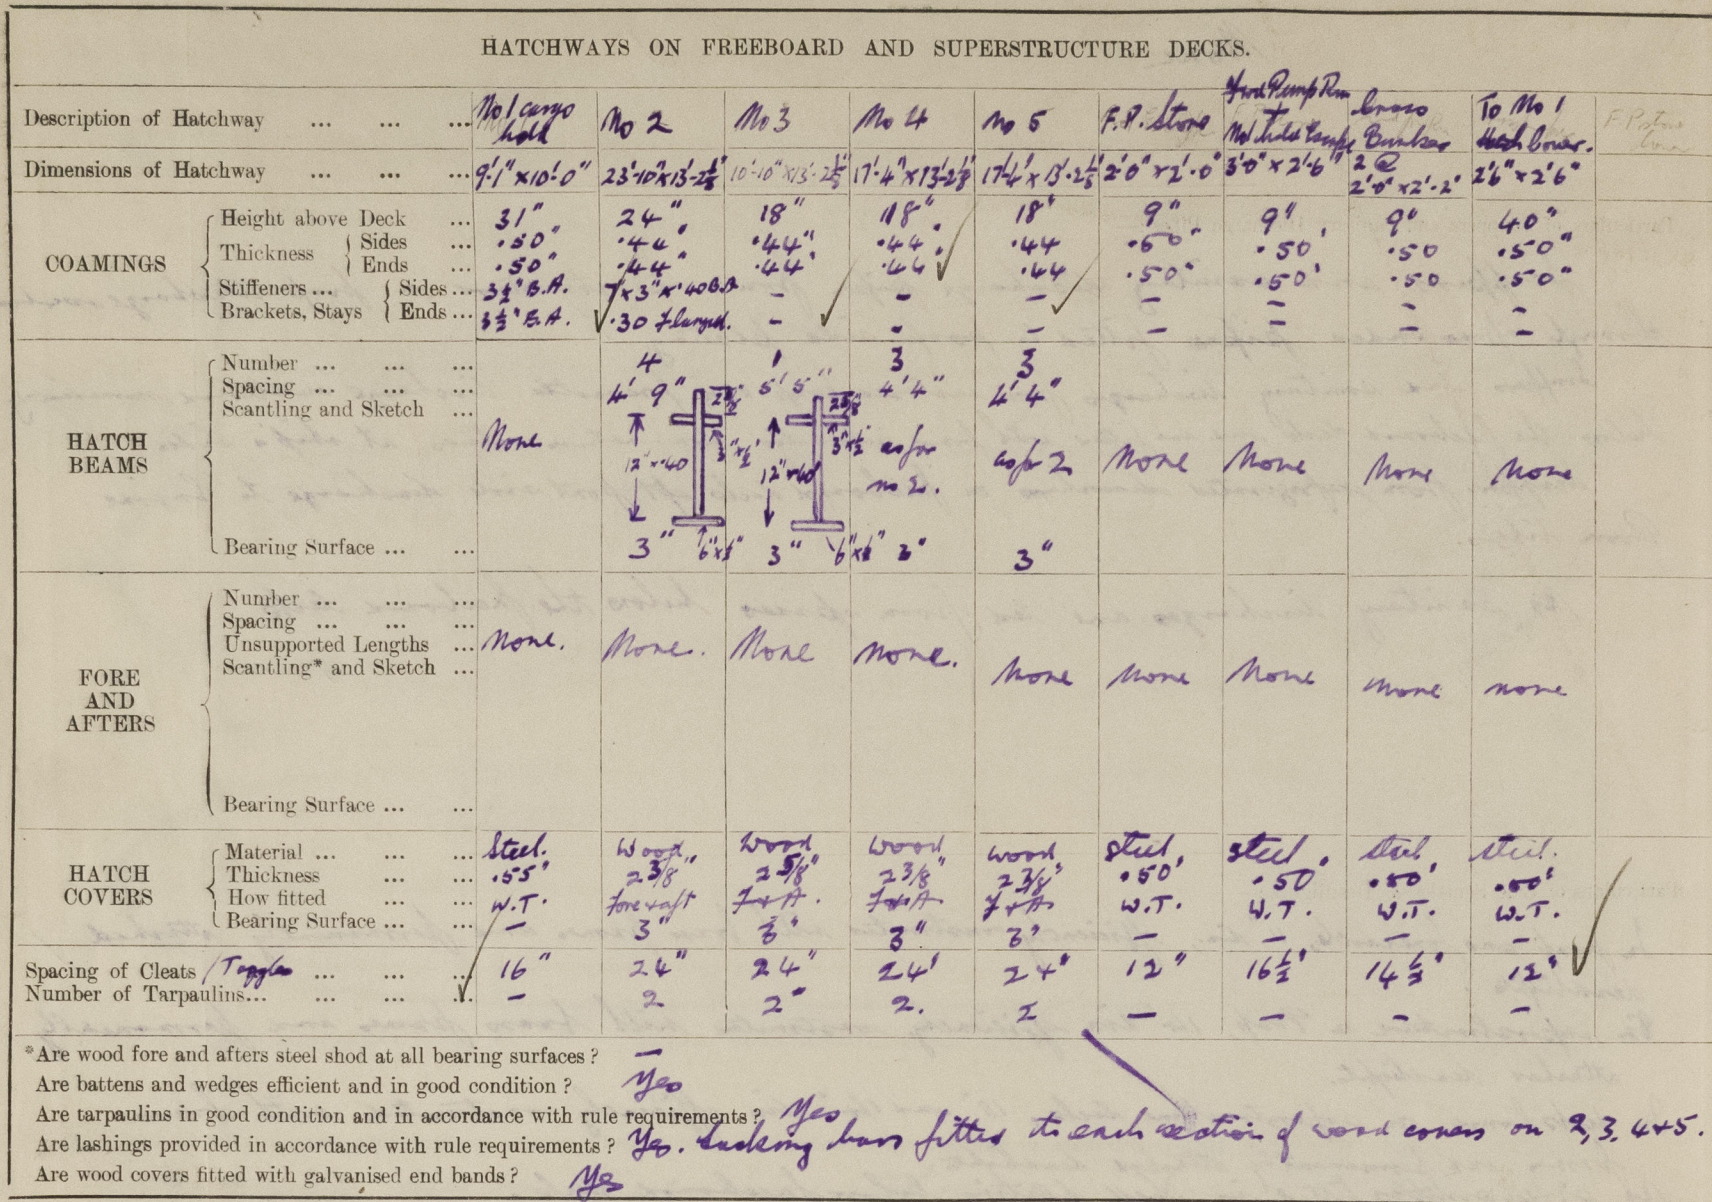 HATCHWAYS ON FREEBOARD AND SUPERSTRUCTURE DECKS.
Description of Hatchway ... ... ... No 1 cargo hold No 2 No 3 No 4 No 5 F.P. Store Fwd Pump Rm + No 1 hold Escape Cross Bunker To No 1 lower.
Dimensions of Hatchway ... ... ... 9'-1" x 10'-0" 23'-10" x 13'-2 1/8" 10'-10" x 13'-2 1/8" 17'-4" x 13'-2 1/8 17'-4" x 13'-2 1/8 2'-0" x 2'-0" 3'-0" x 2'-6" 2 @ 2'-0" x 2'-2" 2'6" x 2'6"
COAMINGS
Height above Deck ... 31" 24" 18" 18" 18" 9" 9" 9" 40"
Thickness Sides ... .50" .44" .44" .44 .44 .50" .50 .50 .50"
Ends ... .50" .44" .44" .44 .44 .50" .50" .50 .50"
Stiffeners ... Sides ... 3½" B.A. 7" x 3" x .40 B.A. – – – – – – –
Brackets, Stays Ends ... 3½" B.A. .30 Flanged. – – – – – – –
HATCH BEAMS
Number ... ... ... 4 1 3 3
Spacing ... ... ... 4' 9" 5' 5" 4' 4" 4' 4"
Scantling and Sketch ...
None 12" x .40 3" x ½" 12" x .40 3" x ½" as for no 2. as for 2 None None None None
Bearing Surface ... ... 3" 6" x ½" 3" 6" x ½" 3" 3"
FORE AND AFTERS
Number ... ... ...
Spacing ... ... ...
Unsupported Lengths ... None. None. None None. None None None None none
Scantling* and Sketch ...
Bearing Surface ... ...
HATCH COVERS
Material ... ... ... Steel. Wood Wood Wood Wood Steel. Steel. Steel. Steel.
Thickness ... ... .55" 2 3/8" 2 5/8" 2 3/8" 2 3/8" .50" .50 .50" .50"
How fitted ... ... W.T. Fore & aft F & A. F & A F & A W.T. W.T. W.T. W.T.
Bearing Surface ... ... – 3" 3" 3" 3" – – – –
Spacing of Cleats / Toggles ... ... ... 16" 24" 24" 24" 24" 12" 16½" 14½" 12"
Number of Tarpaulins... ... ... – 2 2 2. 2 – – – –
*Are wood fore and afters steel shod at all bearing surfaces? –
Are battens and wedges efficient and in good condition? Yes
Are tarpaulins in good condition and in accordance with rule requirements? Yes
Are lashings provided in accordance with rule requirements? Yes. Locking bars fitted to each section of wood covers on 2, 3, 4 & 5.
Are wood covers fitted with galvanised end bands? Yes